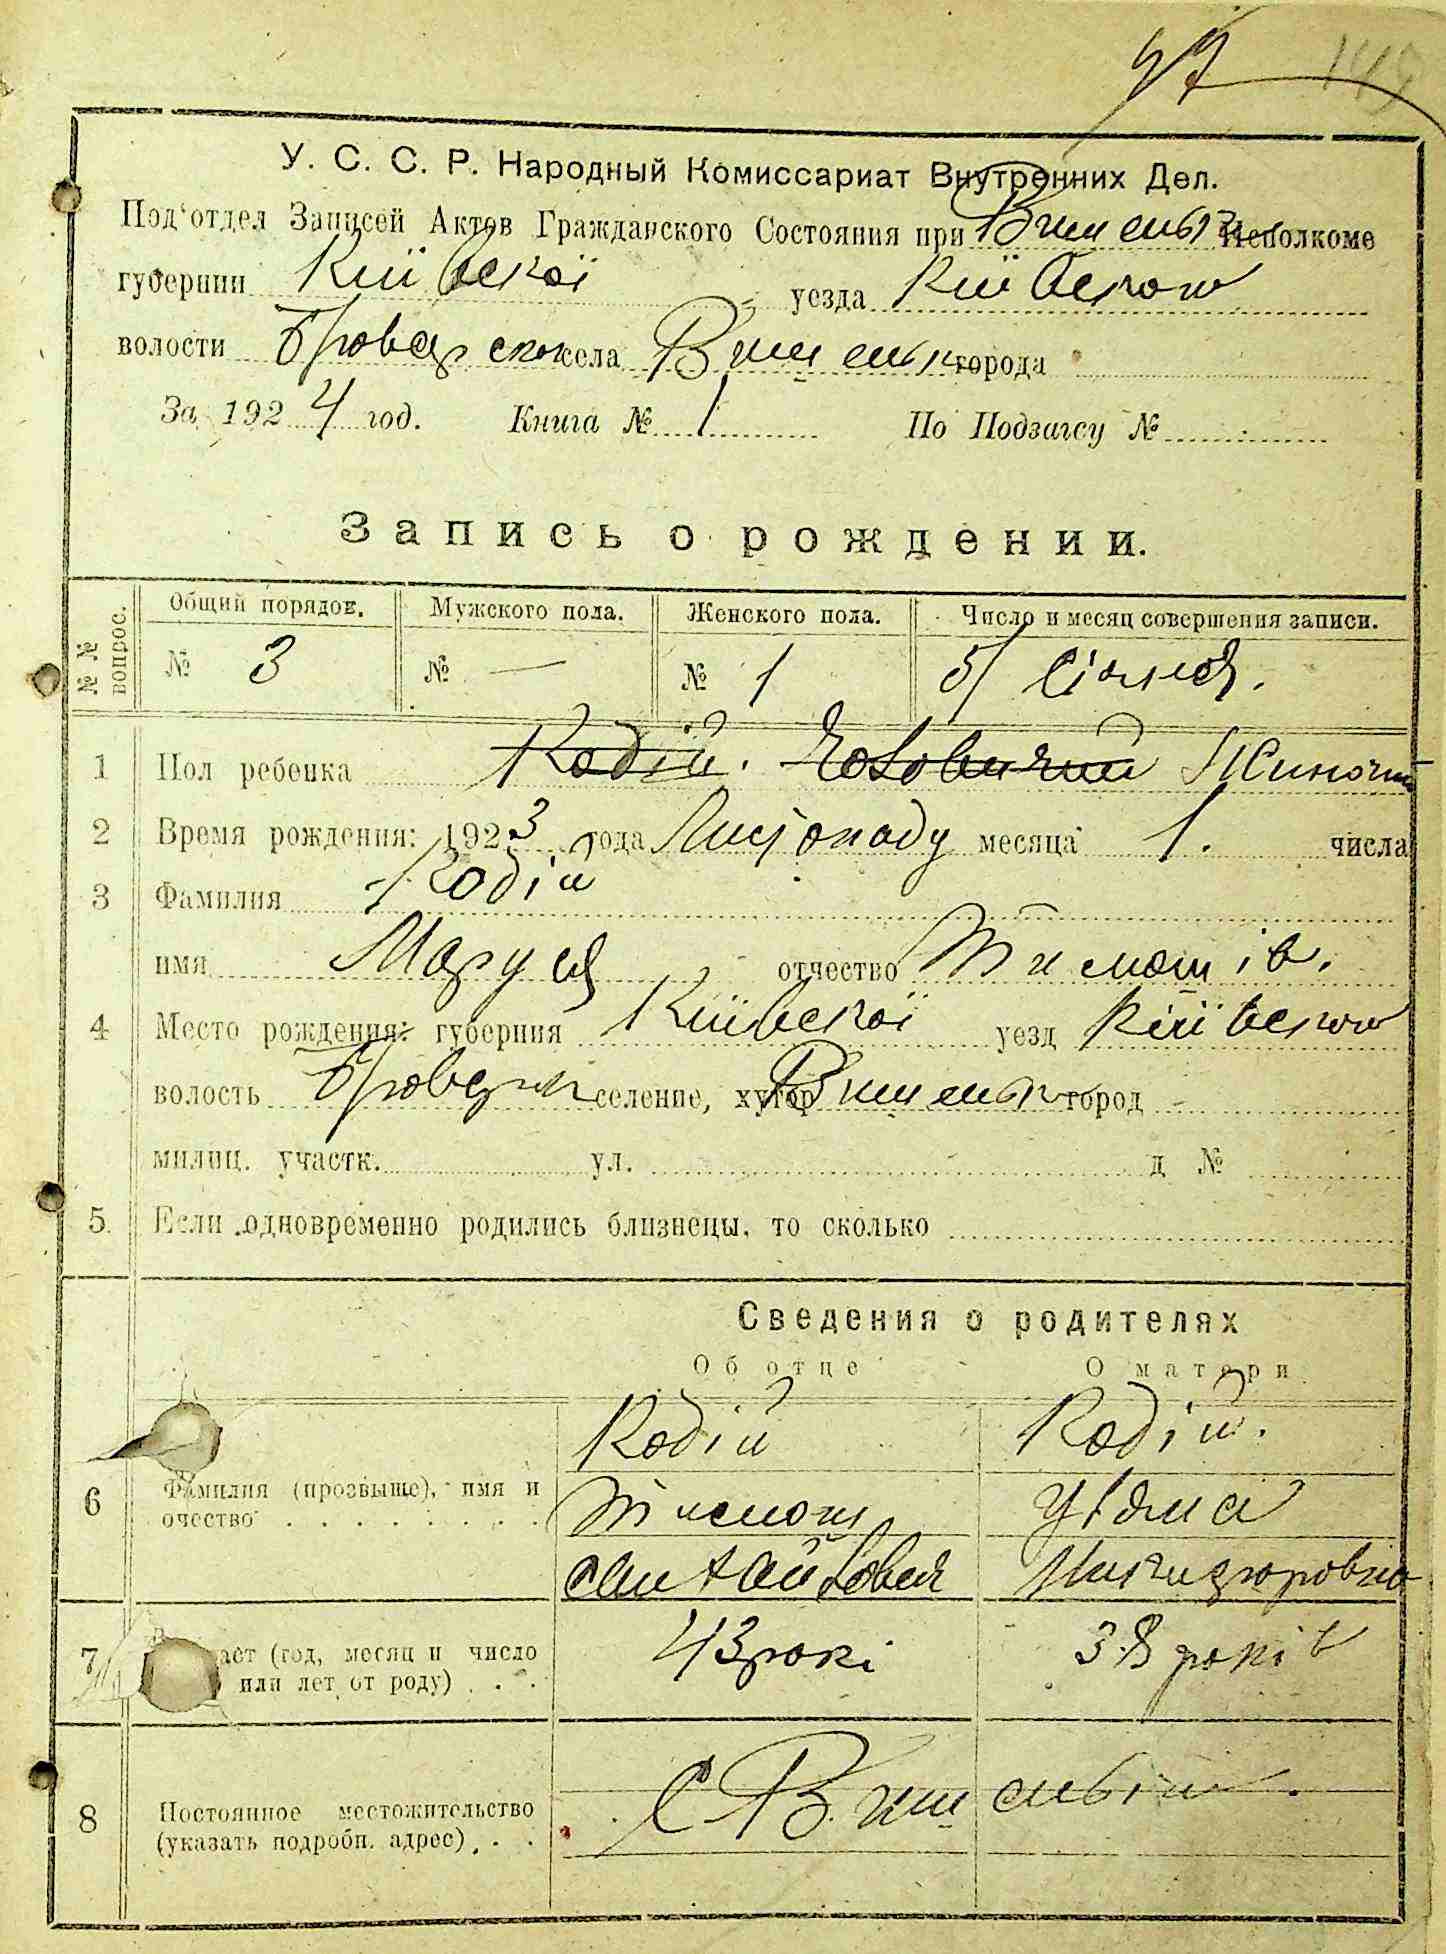 97 149
У. С. С. Р. Народный Комиссариат Внутренних Дел.
Под'отдел Записей Актов Гражданского Состояния при Вишеньк Исполкоме
губернии Київскої уезда Київского
волости Броварскої села Вишеньк города
За 1924 год. Книга № 1 По Подзагсу №
Запись о рождении.
№ № вопрос. Общий порядов. Мужского пола. Женского пола. Число и месяц совершения записи.
№ 3 № — № 1 5/ Січня.
1 Пол ребенка Кодій. Чоловичий Жиночий
2 Время рождения: 1923 года Листопаду месяца 1. числа
3 Фамилия Кодій
имя Маруся отчество Тимотів.
4 Место рождения: губерния Київскої уезд Київского
волость Броварск селение, хутор Вишеньк город -
милиц. участк. ул. д №
5. Если одновременно родились близнецы, то сколько
Сведения о родителях
Об отце О матери
Кодій Кодій.
6 Фамилия (прозвыще), имя и Тимош
очество
7 аст (год, месяц и число 43 рокі 38 років
или лет от роду)
8 Постоянное местожительство С Вишеньки.
(указать подробн. адрес)